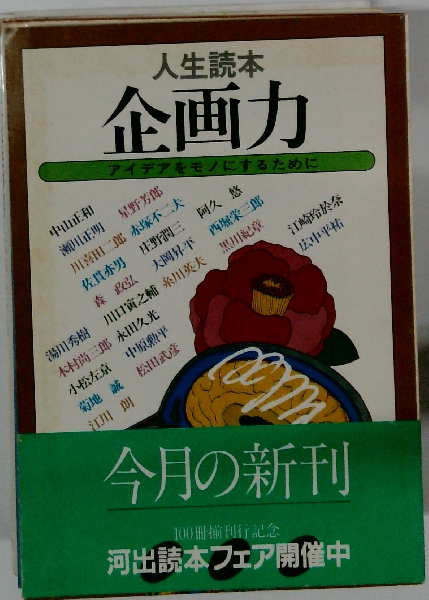 人生読本
企画力
アイデアをモノにするために
中山正和 星野芳郎 阿久 悠 江崎玲於奈
瀬川正明 赤塚不二夫 西堀栄三郎 広中平祐
川喜田二郎 庄野潤三 黒川紀章
佐貫亦男 大岡昇平
森 政弘 糸川英夫
湯川秀樹 川口寅之輔
木村尚三郎 永田久光
小松左京 中原勲平
菊地 誠 松田武彦
江川 朗
今月の新刊
100冊揃刊行記念
河出読本フェア開催中